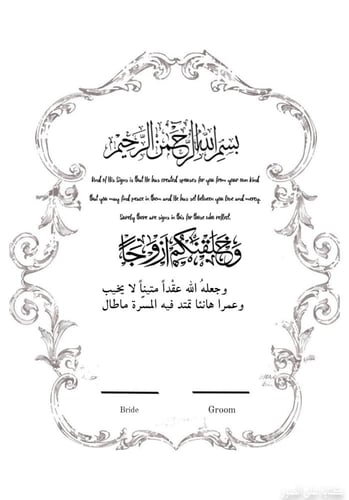 بسم الله الرحمن الرحيم
And of His Signs is that He has created spouses for you from your own kind
that you may find peace in them and He has set between you love and mercy.
Surely there are signs in this for those who reflect.
وخلقناكم ازوجا
وجعلهُ الله عقْداً متيناً لا يخيب
وعمرا هانئا تمتد فيه المسرة ماطال
Bride
Groom